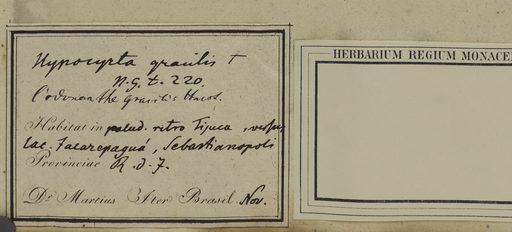 Hypocyrta gracilis †
N.G. t. 220.
Codonanthe gracilis Hanst.
Habitat in palud. retro Tijuca, versus
lac. Jacarepaguá, Sebastianopoli
Provinciae R. d. J.
Dr Martius Iter Brasil. Nov.
HERBARIUM REGIUM MONACEN